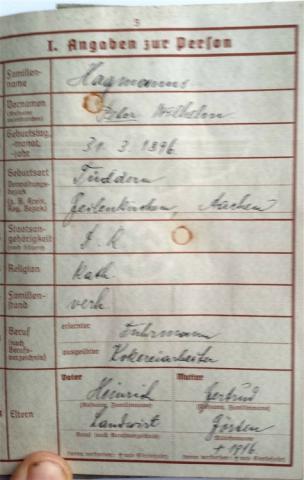 5
I. Angaben zur Person
Familien-
name
Hagmanns
Vornamen
Peter Wilhelm
Geburtstag,
-monat,
-jahr
31. 3. 1896.
Geburtsort
Verwaltungs-
bezirk
(z. B. Kreis,
Reg. Bezirk)
Tüddern
Geilenkirchen, Aachen
Staatsan-
gehörigkeit
D. R.
Religion
kath.
Familien-
stand
verh.
Beruf
(nach
Berufs-
verzeichnis)
erlernter
Fuhrmann
ausgeübter
Kokereiarbeiter
Eltern
Vater
Heinrich
(Rufname, Familienname)
Landwirt
Beruf (nach Berufsverzeichnis)
Mutter
Gertrud
(Rufname, Familienname)
Görten
Mädchenname
† 1916.